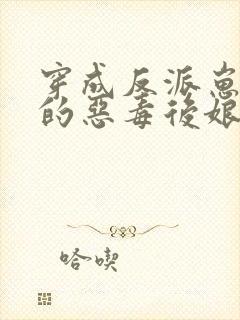 穿成反派崽
的惡毒後娘
哈喫